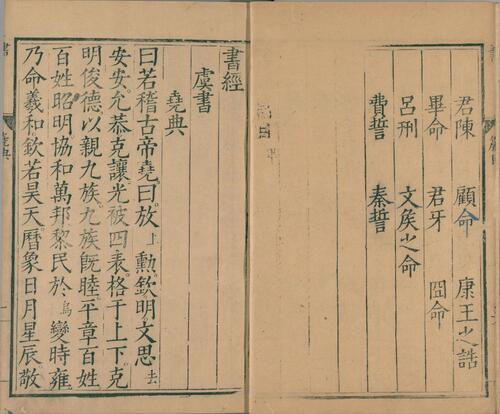 君陳 顧命 康王之誥
畢命 君牙 冏命
呂刑 文矦之命
費誓 秦誓
書經
虞書
堯典
曰若稽古帝堯曰放上勲欽明文思去
安安允恭克讓光被四表格于上下克
明俊德以親九族九族旣睦平章百姓
百姓昭明協和萬邦黎民於烏變時雍
乃命羲和欽若昊天曆象日月星辰敬
堯典